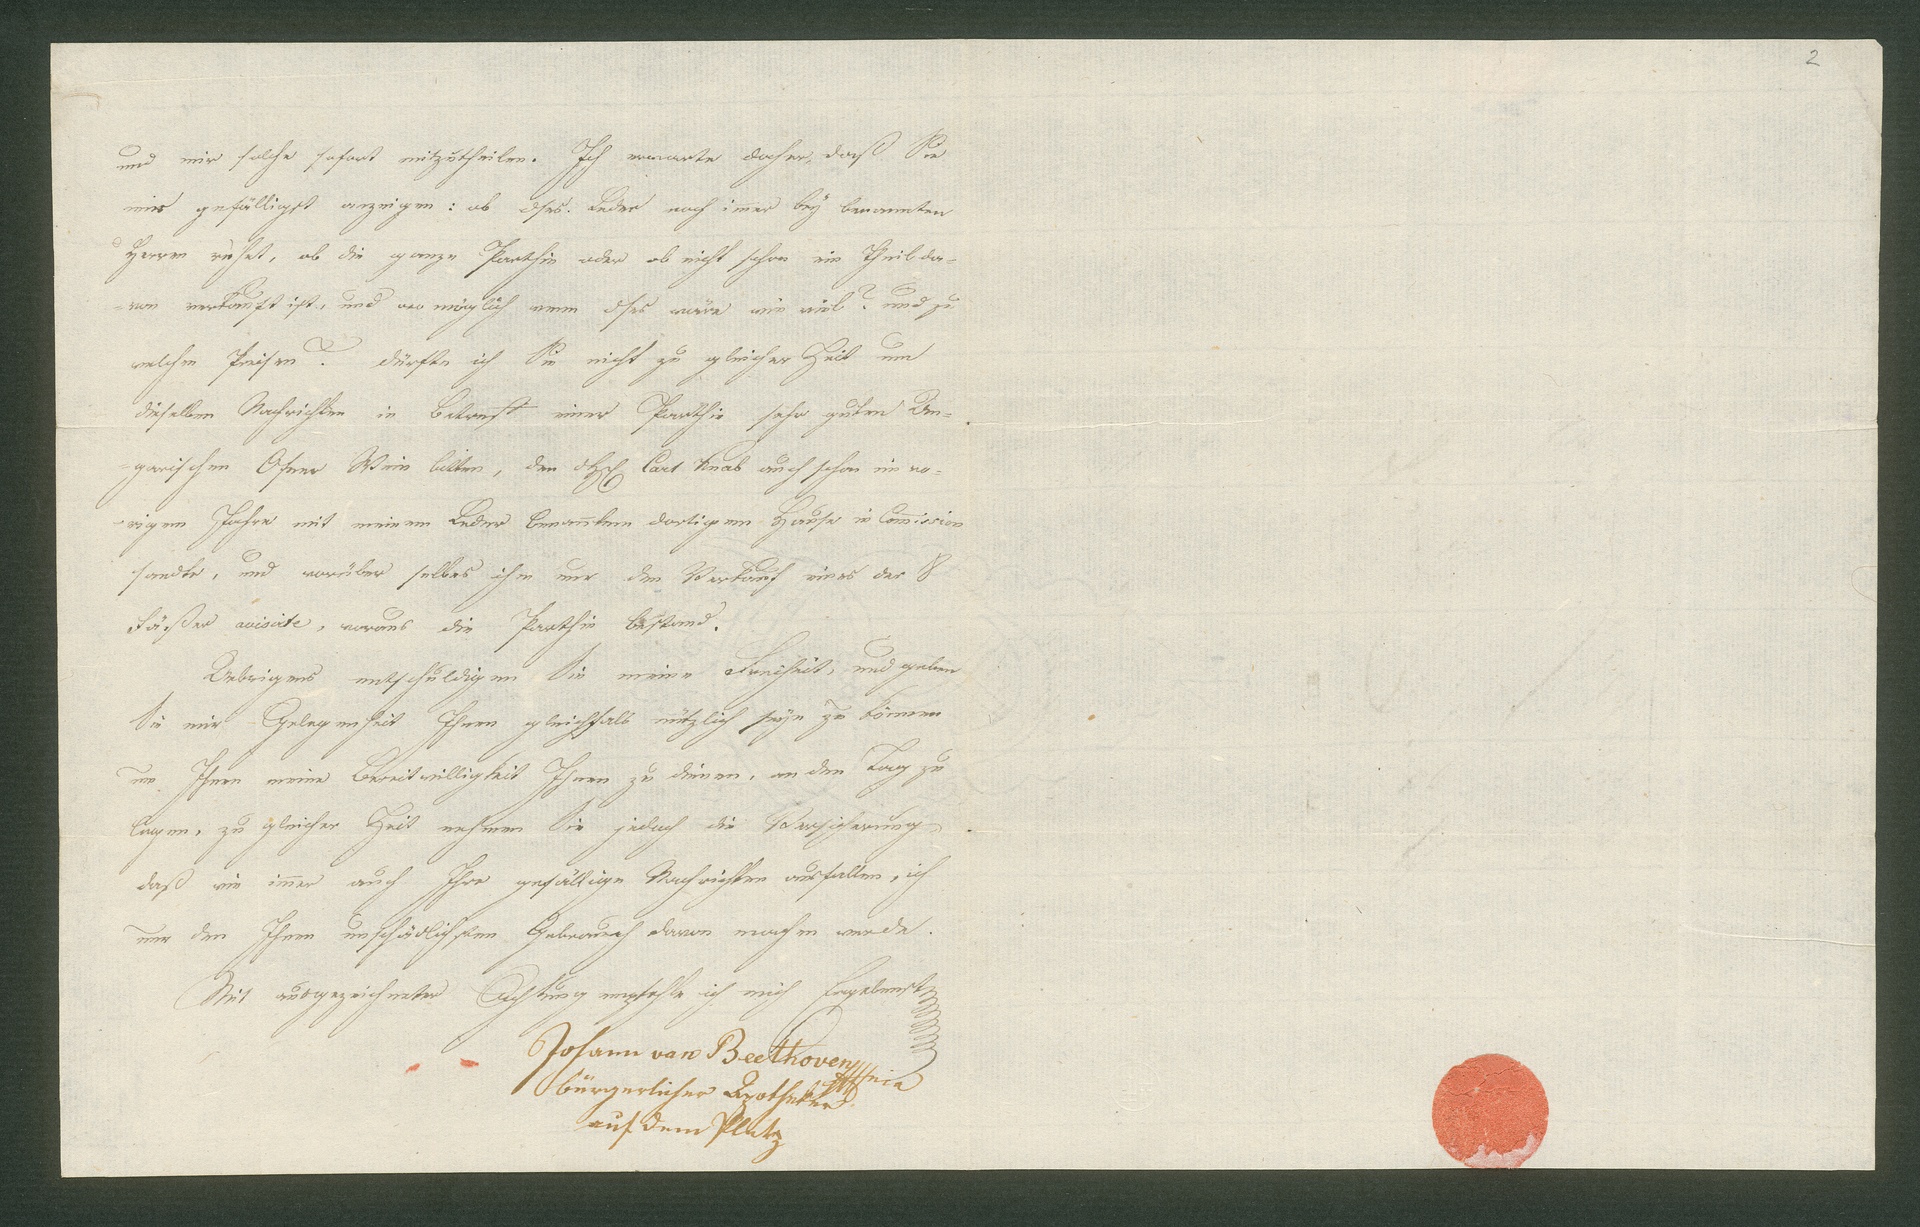 2
und mir solche sofort mitzutheilen. Ich erwarte daher, daß Sie
mir gefälligst anzeigen: ob dses. Leder noch im̅er bey benannten
Herren ruhet, ob die ganze Parthie oder ob nicht schon ein Theil da-
-von verkauft ist, und wo möglich wenn dses wäre wie viel? und zu
welchen Preisen? dürfte ich Sie nicht zu gleicher Zeit um
dieselben Nachrichten in Betreff einer Parthie sehr guten Un-
-garischen Ofner Wein bitten, den Carl Knab auch schon im vo-
-rigen Jahre mit meinem Leder benan̅tem dortigem Hause in Com̅ission
sandte, und worüber selbes ihm nur den Verkauf eines der 8
Fäßer avisirte, woraus die Parthie bestand.
Uebrigens entschuldigen Sie meine Freiheit, und geben
Sie mir Gelegenheit Ihnen gleichfals nützlich seyn zu können
um Ihnen meine Bereitwilligkeit Ihnen zu dienen, an den Tag zu
legen, zu gleicher Zeit nehmen Sie jedoch die Versicherung
daß wie im̅er auch Ihre gefällige Nachrichten ausfallen, ich
nur den Ihnen unschädlichsten Gebrauch davon machen werde.
Mit ausgezeichneter Achtung empfehle ich mich Ergebenst
Johann van Beethoven
bürgerlicher Apotheker
auf dem Platz